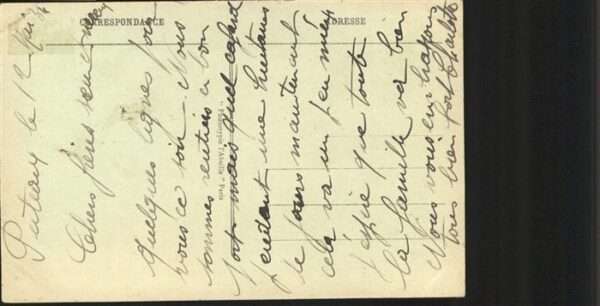 CORRESPONDANCE
ADRESSE
Puteaux le 12 Mai
Chers frère sœur
Quelques lignes pour
vous ce soir. Nous
sommes rentiers en bon
port mais quel cafard
pendant une huitaine
de jours maintenant
cela va un peu mieux
J'espère que toute
la famille va bien
Nous vous embrassons
tous bien fort
Phototypie l'Abeille - Paris